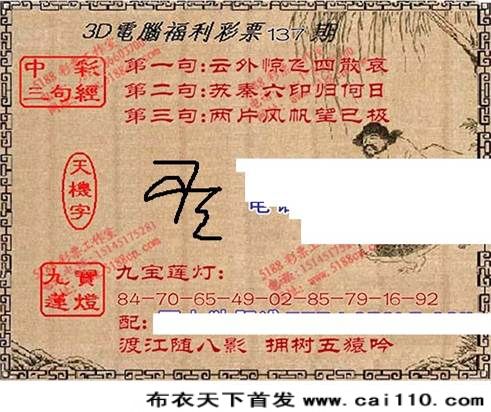 3D電腦福利彩票137期
中彩三句經
第一句:云外惊飞四散哀
第二句:苏秦六印归何日
第三句:两片风帆望已极
天機字
九寶蓮燈
九宝莲灯:
84-70-65-49-02-85-79-16-92
配:
渡江随八影 拥树五猿吟
布衣天下首发 www.cai110.com